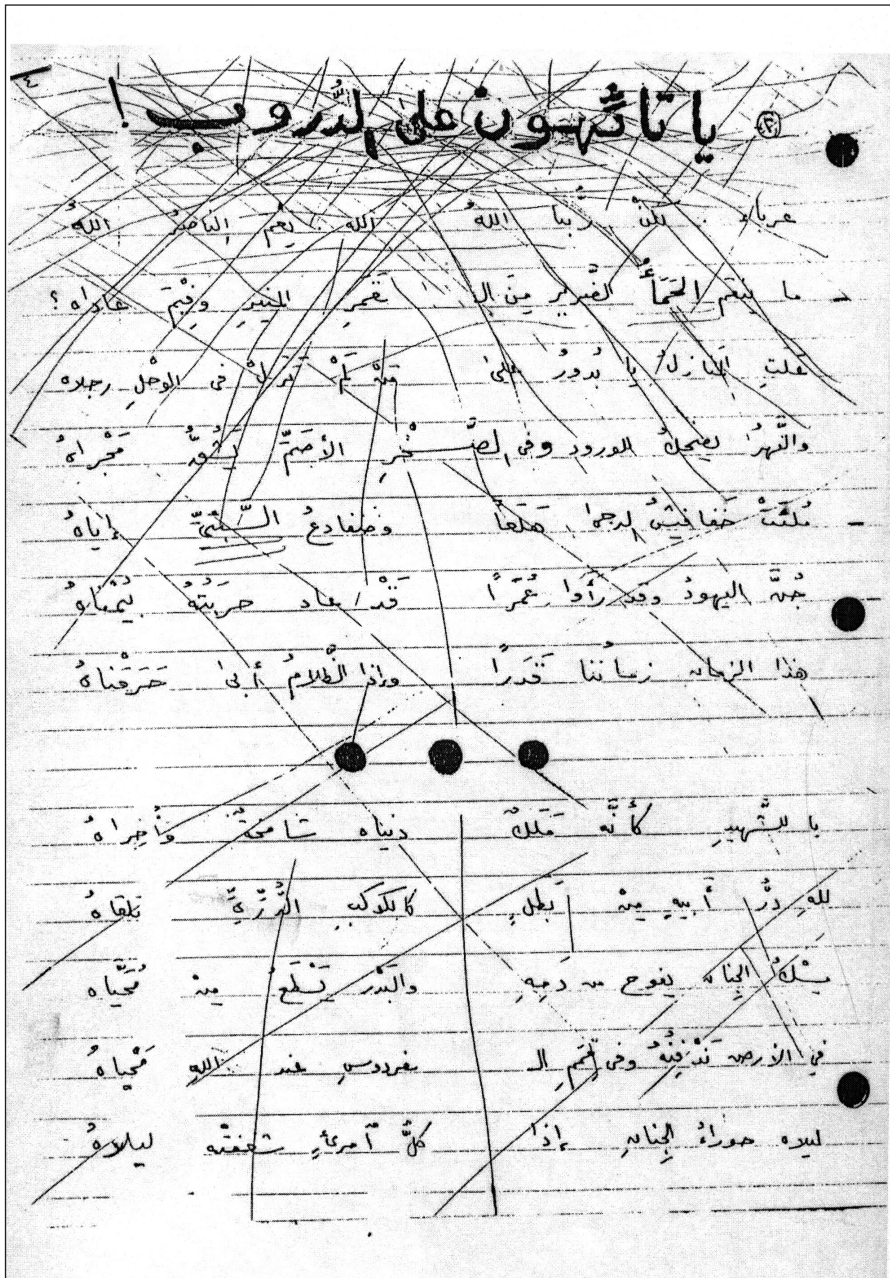 ٤
(٣) يا تائهون على الدُّروب !
غرباء لكنْ ربُّنا اللهُ الله نِعْمَ الناصرُ اللهُ
- ما ينقم الحَمَأُ الضَّرير مِنَ الـ ـقمرِ المنيرِ وفِيْمَ عاداه ؟
غلتِ المنازلُ يا بُدورُ على مَنْ لَمْ تَزَلْ في الوحْلِ رجلاه
والنَّهرُ يضحكُ للورود وفي الصَّـخْرِ الأَصَمِّ يَشُقُّ مَجْراهُ
- خفافيشُ الدجى هَلَعاً وضفادعُ السَّبْتِيِّ إياهُ
جُنَّ اليهودُ وقد رأَوا عُمَرًا قَدْ عاد حربَتُهُ بِيُمْناهُ
هذا الزمان زمانُنا قَدَرًا وإذا الظَّلامُ أَبى حَرَقْناهُ
يا للشَّهيدِ كأنَّه مَلَكٌ دنياه شامخةٌ وأُخراهُ
للهِ دَرُّ أَبيهِ مِنْ بَطَلٍ كالكوكبِ الدُّرِّيِّ تلقاهُ
مِسْكُ الجِنانِ يفوح من دَمِهِ والبدْر يَسْطَعُ مِنْ مُحَيَّاه
في الأرض نَدْفِنُهُ وفي قِمَمِ الـ ـفردوسِ عند اللهِ مَحْياهُ
ليلاه حوراءُ الجِنانِ إذا كلُّ آمرئٍ شغفتْه ليلاهُ